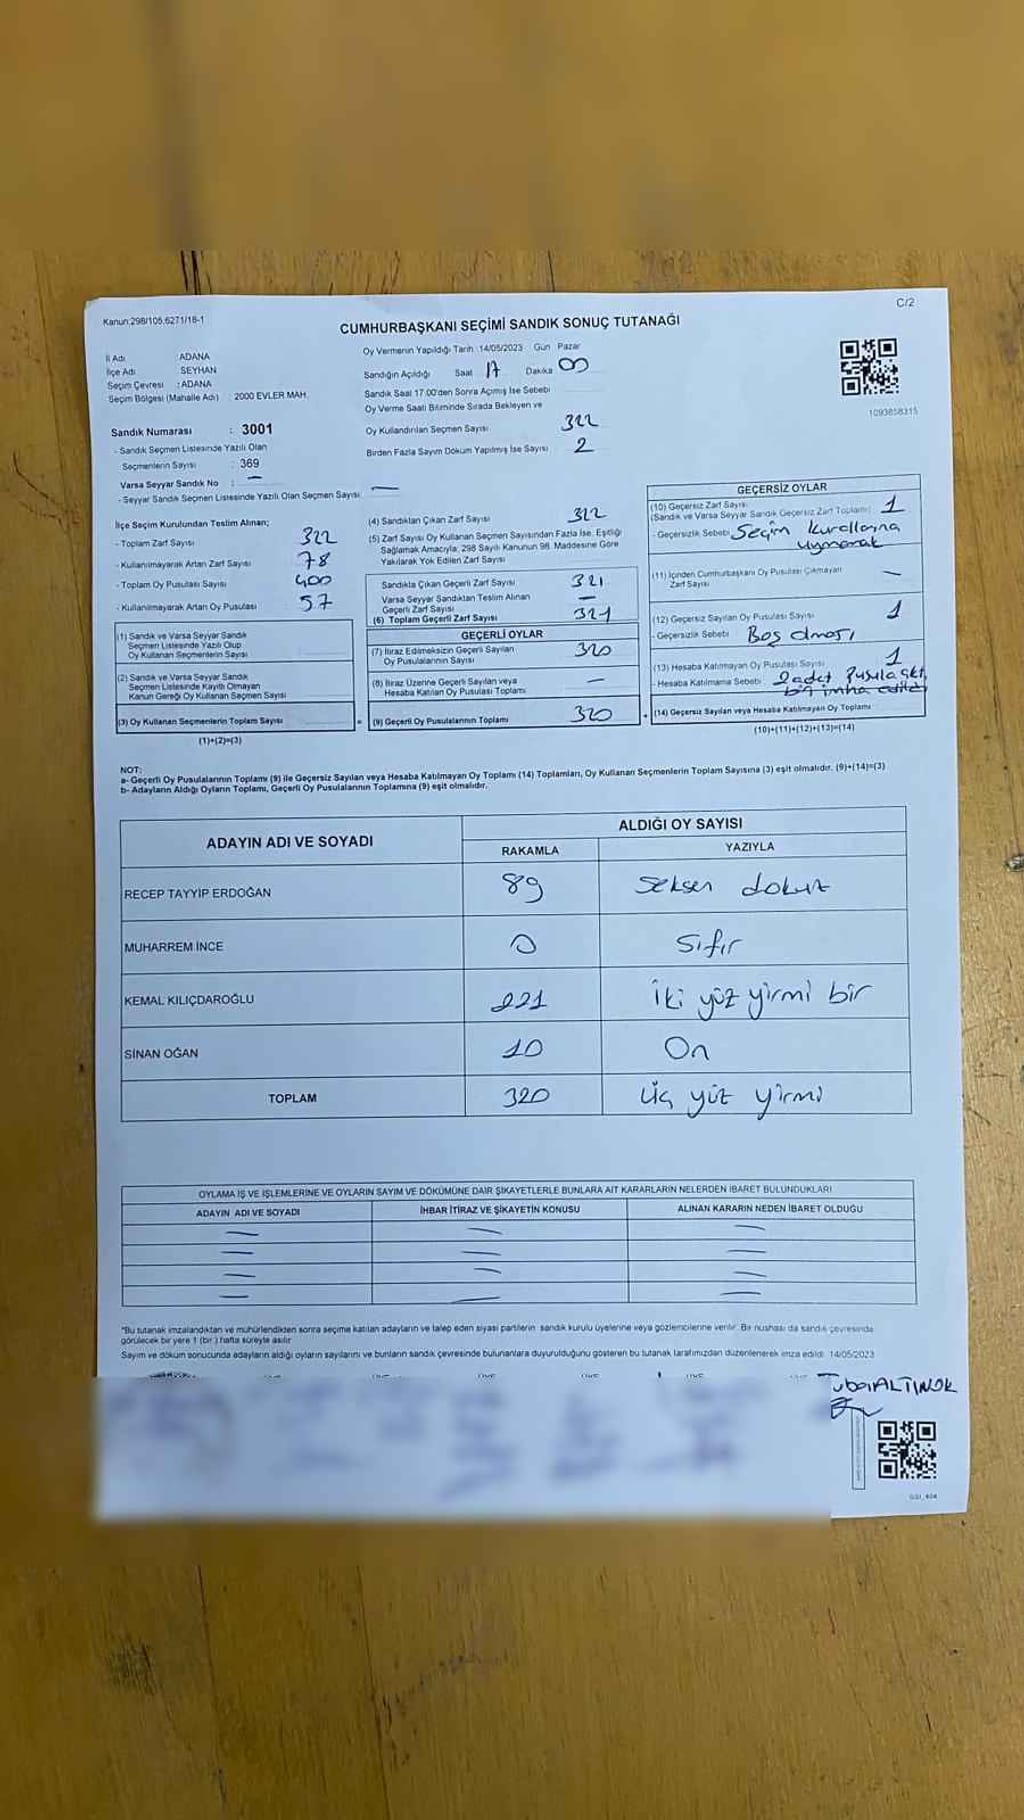 C/2
Kanun:298/105,6271/18-1
CUMHURBAŞKANI SEÇİMİ SANDIK SONUÇ TUTANAĞI
İl Adı : ADANA
İlçe Adı : SEYHAN
Seçim Çevresi : ADANA
Seçim Bölgesi (Mahalle Adı) : 2000 EVLER MAH.
Oy Vermenin Yapıldığı Tarih :14/05/2023 Gün Pazar
Sandığın Açıldığı Saat 17 Dakika 00
Sandık Saat 17.00'den Sonra Açımış İse Sebebi
Oy Verme Saati Bitiminde Sırada Bekleyen ve
Oy Kullandırılan Seçmen Sayısı 322
Birden Fazla Sayım Döküm Yapılmış İse Sayısı 2
1093858315
Sandık Numarası : 3001
- Sandık Seçmen Listesinde Yazılı Olan
Seçmenlerin Sayısı : 369
Varsa Seyyar Sandık No : —
- Seyyar Sandık Seçmen Listesinde Yazılı Olan Seçmen Sayısı —
İlçe Seçim Kurulundan Teslim Alınan;
- Toplam Zarf Sayısı 322
- Kullanılmayarak Artan Zarf Sayısı 78
- Toplam Oy Pusulası Sayısı 400
- Kullanılmayarak Artan Oy Pusulası 57
(1) Sandık ve Varsa Seyyar Sandık
Seçmen Listesinde Yazılı Olup
Oy Kullanan Seçmenlerin Sayısı
(2) Sandık ve Varsa Seyyar Sandık
Seçmen Listesinde Kayıtlı Olmayan
Kanun Gereği Oy Kullanan Seçmen Sayısı
(3) Oy Kullanan Seçmenlerin Toplam Sayısı
(1)+(2)=(3)
(4) Sandıktan Çıkan Zarf Sayısı 322
(5) Zarf Sayısı Oy Kullanan Seçmen Sayısından Fazla İse, Eşitliği
Sağlamak Amacıyla, 298 Sayılı Kanunun 98. Maddesine Göre
Yakılarak Yok Edilen Zarf Sayısı
Sandıkta Çıkan Geçerli Zarf Sayısı 321
Varsa Seyyar Sandıktan Teslim Alınan
Geçerli Zarf Sayısı —
(6) Toplam Geçerli Zarf Sayısı 321
GEÇERLİ OYLAR
(7) İtiraz Edilmeksizin Geçerli Sayılan
Oy Pusulalarının Sayısı 320
(8) İtiraz Üzerine Geçerli Sayılan veya
Hesaba Katılan Oy Pusulası Toplamı —
(9) Geçerli Oy Pusulalarının Toplamı 320
GEÇERSİZ OYLAR
(10) Geçersiz Zarf Sayısı
(Sandık ve Varsa Seyyar Sandık Geçersiz Zarf Toplamı) 1
- Geçersizlik Sebebi Seçim kurallarına
uymamak
(11) İçinden Cumhurbaşkanı Oy Pusulası Çıkmayan
Zarf Sayısı —
(12) Geçersiz Sayılan Oy Pusulası Sayısı 1
- Geçersizlik Sebebi Boş olması
(13) Hesaba Katılmayan Oy Pusulası Sayısı 1
- Hesaba Katılmama Sebebi : 2 adet pusula çıktı
biri imha edildi
(14) Geçersiz Sayılan veya Hesaba Katılmayan Oy Toplamı
(10)+(11)+(12)+(13)=(14)
NOT:
a- Geçerli Oy Pusulalarının Toplamı (9) ile Geçersiz Sayılan veya Hesaba Katılmayan Oy Toplamı (14) Toplamları, Oy Kullanan Seçmenlerin Toplam Sayısına (3) eşit olmalıdır. (9)+(14)=(3)
b- Adayların Aldığı Oyların Toplamı, Geçerli Oy Pusulalarının Toplamına (9) eşit olmalıdır.
ADAYIN ADI VE SOYADI ALDIĞI OY SAYISI
RAKAMLA YAZIYLA
RECEP TAYYİP ERDOĞAN 89 Seksen dokuz
MUHARREM İNCE 0 Sıfır
KEMAL KILIÇDAROĞLU 221 İki yüz yirmi bir
SİNAN OĞAN 10 On
TOPLAM 320 Üç yüz yirmi
OYLAMA İŞ VE İŞLEMLERİNE VE OYLARIN SAYIM VE DÖKÜMÜNE DAİR ŞİKAYETLERLE BUNLARA AİT KARARLARIN NELERDEN İBARET BULUNDUKLARI
ADAYIN ADI VE SOYADI İHBAR İTİRAZ VE ŞİKAYETİN KONUSU ALINAN KARARIN NEDEN İBARET OLDUĞU
— — —
— — —
— — —
— — —
*Bu tutanak imzalandıktan ve mühürlendikten sonra seçime katılan adayların ve talep eden siyasi partilerin sandık kurulu üyelerine veya gözlemcilerine verilir. Bir nüshası da sandık çevresinde
görülecek bir yere 1 (bir) hafta süreyle asılır
Sayım ve döküm sonucunda adayların aldığı oyların sayılarını ve bunların sandık çevresinde bulunanlara duyurulduğunu gösteren bu tutanak tarafımızdan düzenlenerek imza edildi. 14/05/2023
Tuba ALTINOK